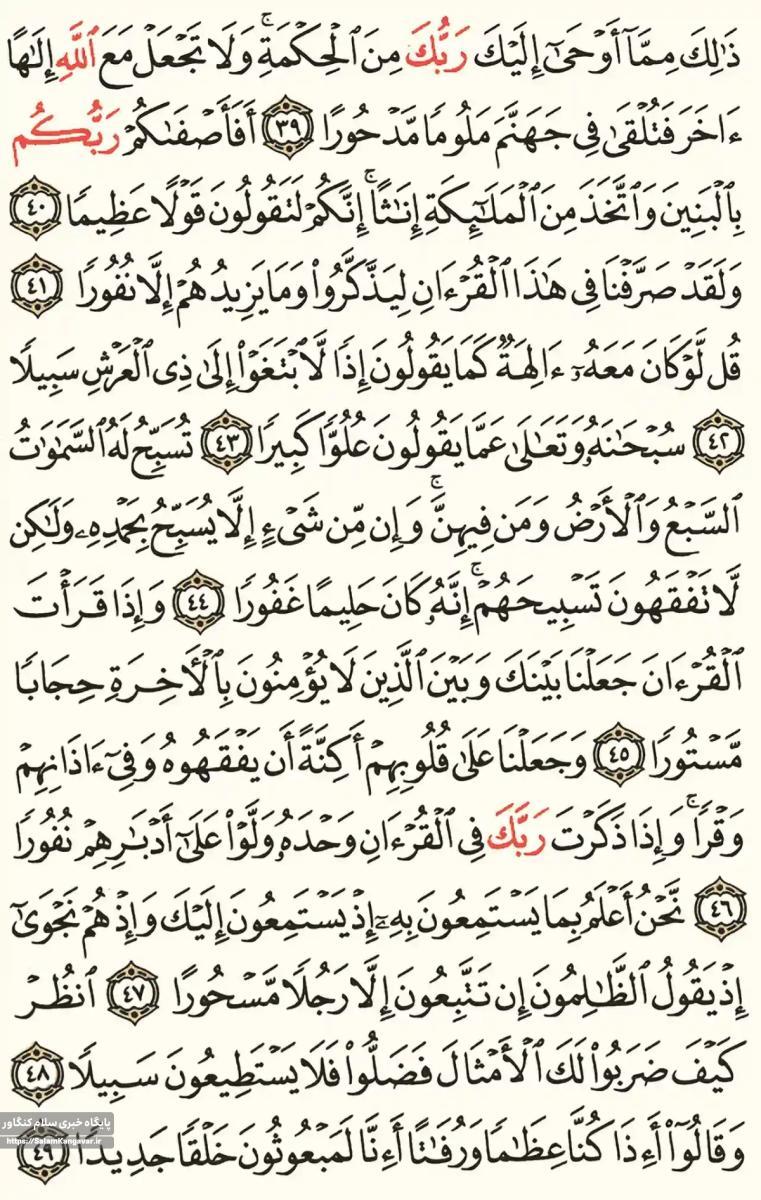 ذَٰلِكَ مِمَّآ أَوۡحَىٰٓ إِلَيۡكَ رَبُّكَ مِنَ ٱلۡحِكۡمَةِۗ وَلَا تَجۡعَلۡ مَعَ ٱللَّهِ إِلَٰهًا
ءَاخَرَ فَتُلۡقَىٰ فِي جَهَنَّمَ مَلُومٗا مَّدۡحُورًا ٣٩ أَفَأَصۡفَىٰكُمۡ رَبُّكُم
بِٱلۡبَنِينَ وَٱتَّخَذَ مِنَ ٱلۡمَلَٰٓئِكَةِ إِنَٰثًاۚ إِنَّكُمۡ لَتَقُولُونَ قَوۡلًا عَظِيمٗا ٤٠
وَلَقَدۡ صَرَّفۡنَا فِي هَٰذَا ٱلۡقُرۡءَانِ لِيَذَّكَّرُواْ وَمَا يَزِيدُهُمۡ إِلَّا نُفُورٗا ٤١
قُل لَّوۡ كَانَ مَعَهُۥٓ ءَالِهَةٞ كَمَا يَقُولُونَ إِذٗا لَّٱبۡتَغَوۡاْ إِلَىٰ ذِي ٱلۡعَرۡشِ سَبِيلٗا
٤٢ سُبۡحَٰنَهُۥ وَتَعَٰلَىٰ عَمَّا يَقُولُونَ عُلُوّٗا كَبِيرٗا ٤٣ تُسَبِّحُ لَهُ ٱلسَّمَٰوَٰتُ
ٱلسَّبۡعُ وَٱلۡأَرۡضُ وَمَن فِيهِنَّۚ وَإِن مِّن شَيۡءٍ إِلَّا يُسَبِّحُ بِحَمۡدِهِۦ وَلَٰكِن
لَّا تَفۡقَهُونَ تَسۡبِيحَهُمۡۚ إِنَّهُۥ كَانَ حَلِيمًا غَفُورٗا ٤٤ وَإِذَا قَرَأۡتَ
ٱلۡقُرۡءَانَ جَعَلۡنَا بَيۡنَكَ وَبَيۡنَ ٱلَّذِينَ لَا يُؤۡمِنُونَ بِٱلۡأٓخِرَةِ حِجَابٗا
مَّسۡتُورٗا ٤٥ وَجَعَلۡنَا عَلَىٰ قُلُوبِهِمۡ أَكِنَّةً أَن يَفۡقَهُوهُ وَفِيٓ ءَاذَانِهِمۡ
وَقۡرٗاۚ وَإِذَا ذَكَرۡتَ رَبَّكَ فِي ٱلۡقُرۡءَانِ وَحۡدَهُۥ وَلَّوۡاْ عَلَىٰٓ أَدۡبَٰرِهِمۡ نُفُورٗا
٤٦ نَّحۡنُ أَعۡلَمُ بِمَا يَسۡتَمِعُونَ بِهِۦٓ إِذۡ يَسۡتَمِعُونَ إِلَيۡكَ وَإِذۡ هُمۡ نَجۡوَىٰٓ
إِذۡ يَقُولُ ٱلظَّٰلِمُونَ إِن تَتَّبِعُونَ إِلَّا رَجُلٗا مَّسۡحُورًا ٤٧ ٱنظُرۡ
كَيۡفَ ضَرَبُواْ لَكَ ٱلۡأَمۡثَالَ فَضَلُّواْ فَلَا يَسۡتَطِيعُونَ سَبِيلٗا ٤٨
وَقَالُوٓاْ أَءِذَا كُنَّا عِظَٰمٗا وَرُفَٰتًا أَءِنَّا لَمَبۡعُوثُونَ خَلۡقٗا جَدِيدٗا ٤٩
پایگاه خبری سلام کنگاور
https://SalamKangavar.ir